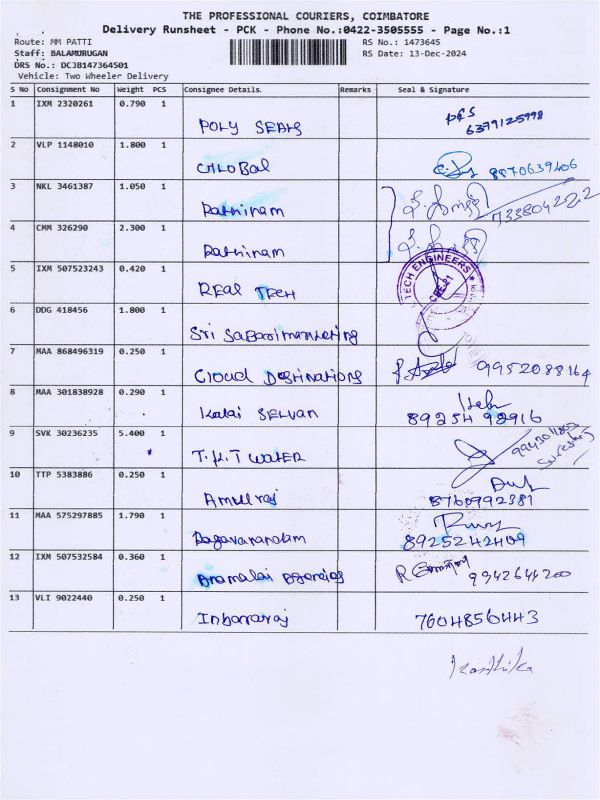 THE PROFESSIONAL COURIERS, COIMBATORE
Delivery Runsheet - PCK - Phone No.:0422-3505555 - Page No.:1
Route: MM PATTI RS No.: 1473645
Staff: BALAMURUGAN RS Date: 13-Dec-2024
DRS No.: DCJB147364501
Vehicle: Two Wheeler Delivery
S No Consignment No Weight PCS Consignee Details. Remarks Seal & Signature
1 IXM 2320261 0.790 1
POLY SEALS 6379125998
2 VLP 1148010 1.800 1
GLOBAL 8870639406
3 NKL 3461387 1.050 1
Rathinam
4 CMM 326290 2.300 1
Rathinam
5 IXM 507523243 0.420 1 TECH ENGINEERS
REAL TECH CBE-21
6 DDG 418456 1.800 1
Sri Sabari marketing
7 MAA 868496319 0.250 1
Cloud Destinations 9952088164
8 MAA 301838928 0.290 1
Kalai SELVAN 89254 92916
9 SVK 30236235 5.400 1
T.K.T WATER
10 TTP 5383886 0.250 1
Amulraj 8760992381
11 MAA 575297885 1.790 1
Ragavanandam 8925242409
12 IXM 507532584 0.360 1
Anamalai agencies 9942644200
13 VLI 9022440 0.250 1
Inbararaj 7604856443
Karthika